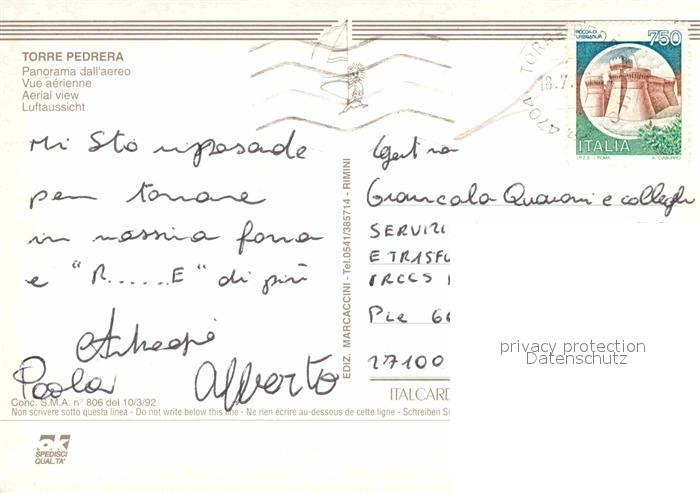 TORRE PEDRERA
Panorama dall'aereo
Vue aérienne
Aerial view
Luftaussicht
Mi sto riposando
per tornare
in massima forma
e "R.....E" di più
Paola Alberto
Conc. S.M.A. n° 806 del 10/3/92
Non scrivere sotto questa linea - Do not write below this line - Ne rien écrire au-dessous de cette ligne - Schreiben Si
SPEDISCI
QUAL.TA'
EDIZ. MARCACCINI - Tel.0541/385714 - RIMINI
TORRE PEDRERA
18.7.
4704
ROCCA DI
URBISAGLIA
750
ITALIA
I.P.Z.S. - ROMA
Giancarla Quaroni e collegh
SERVIZI
E TRASFU
IRCCS
P.le
27100
ITALCARD
privacy protection
Datenschutz